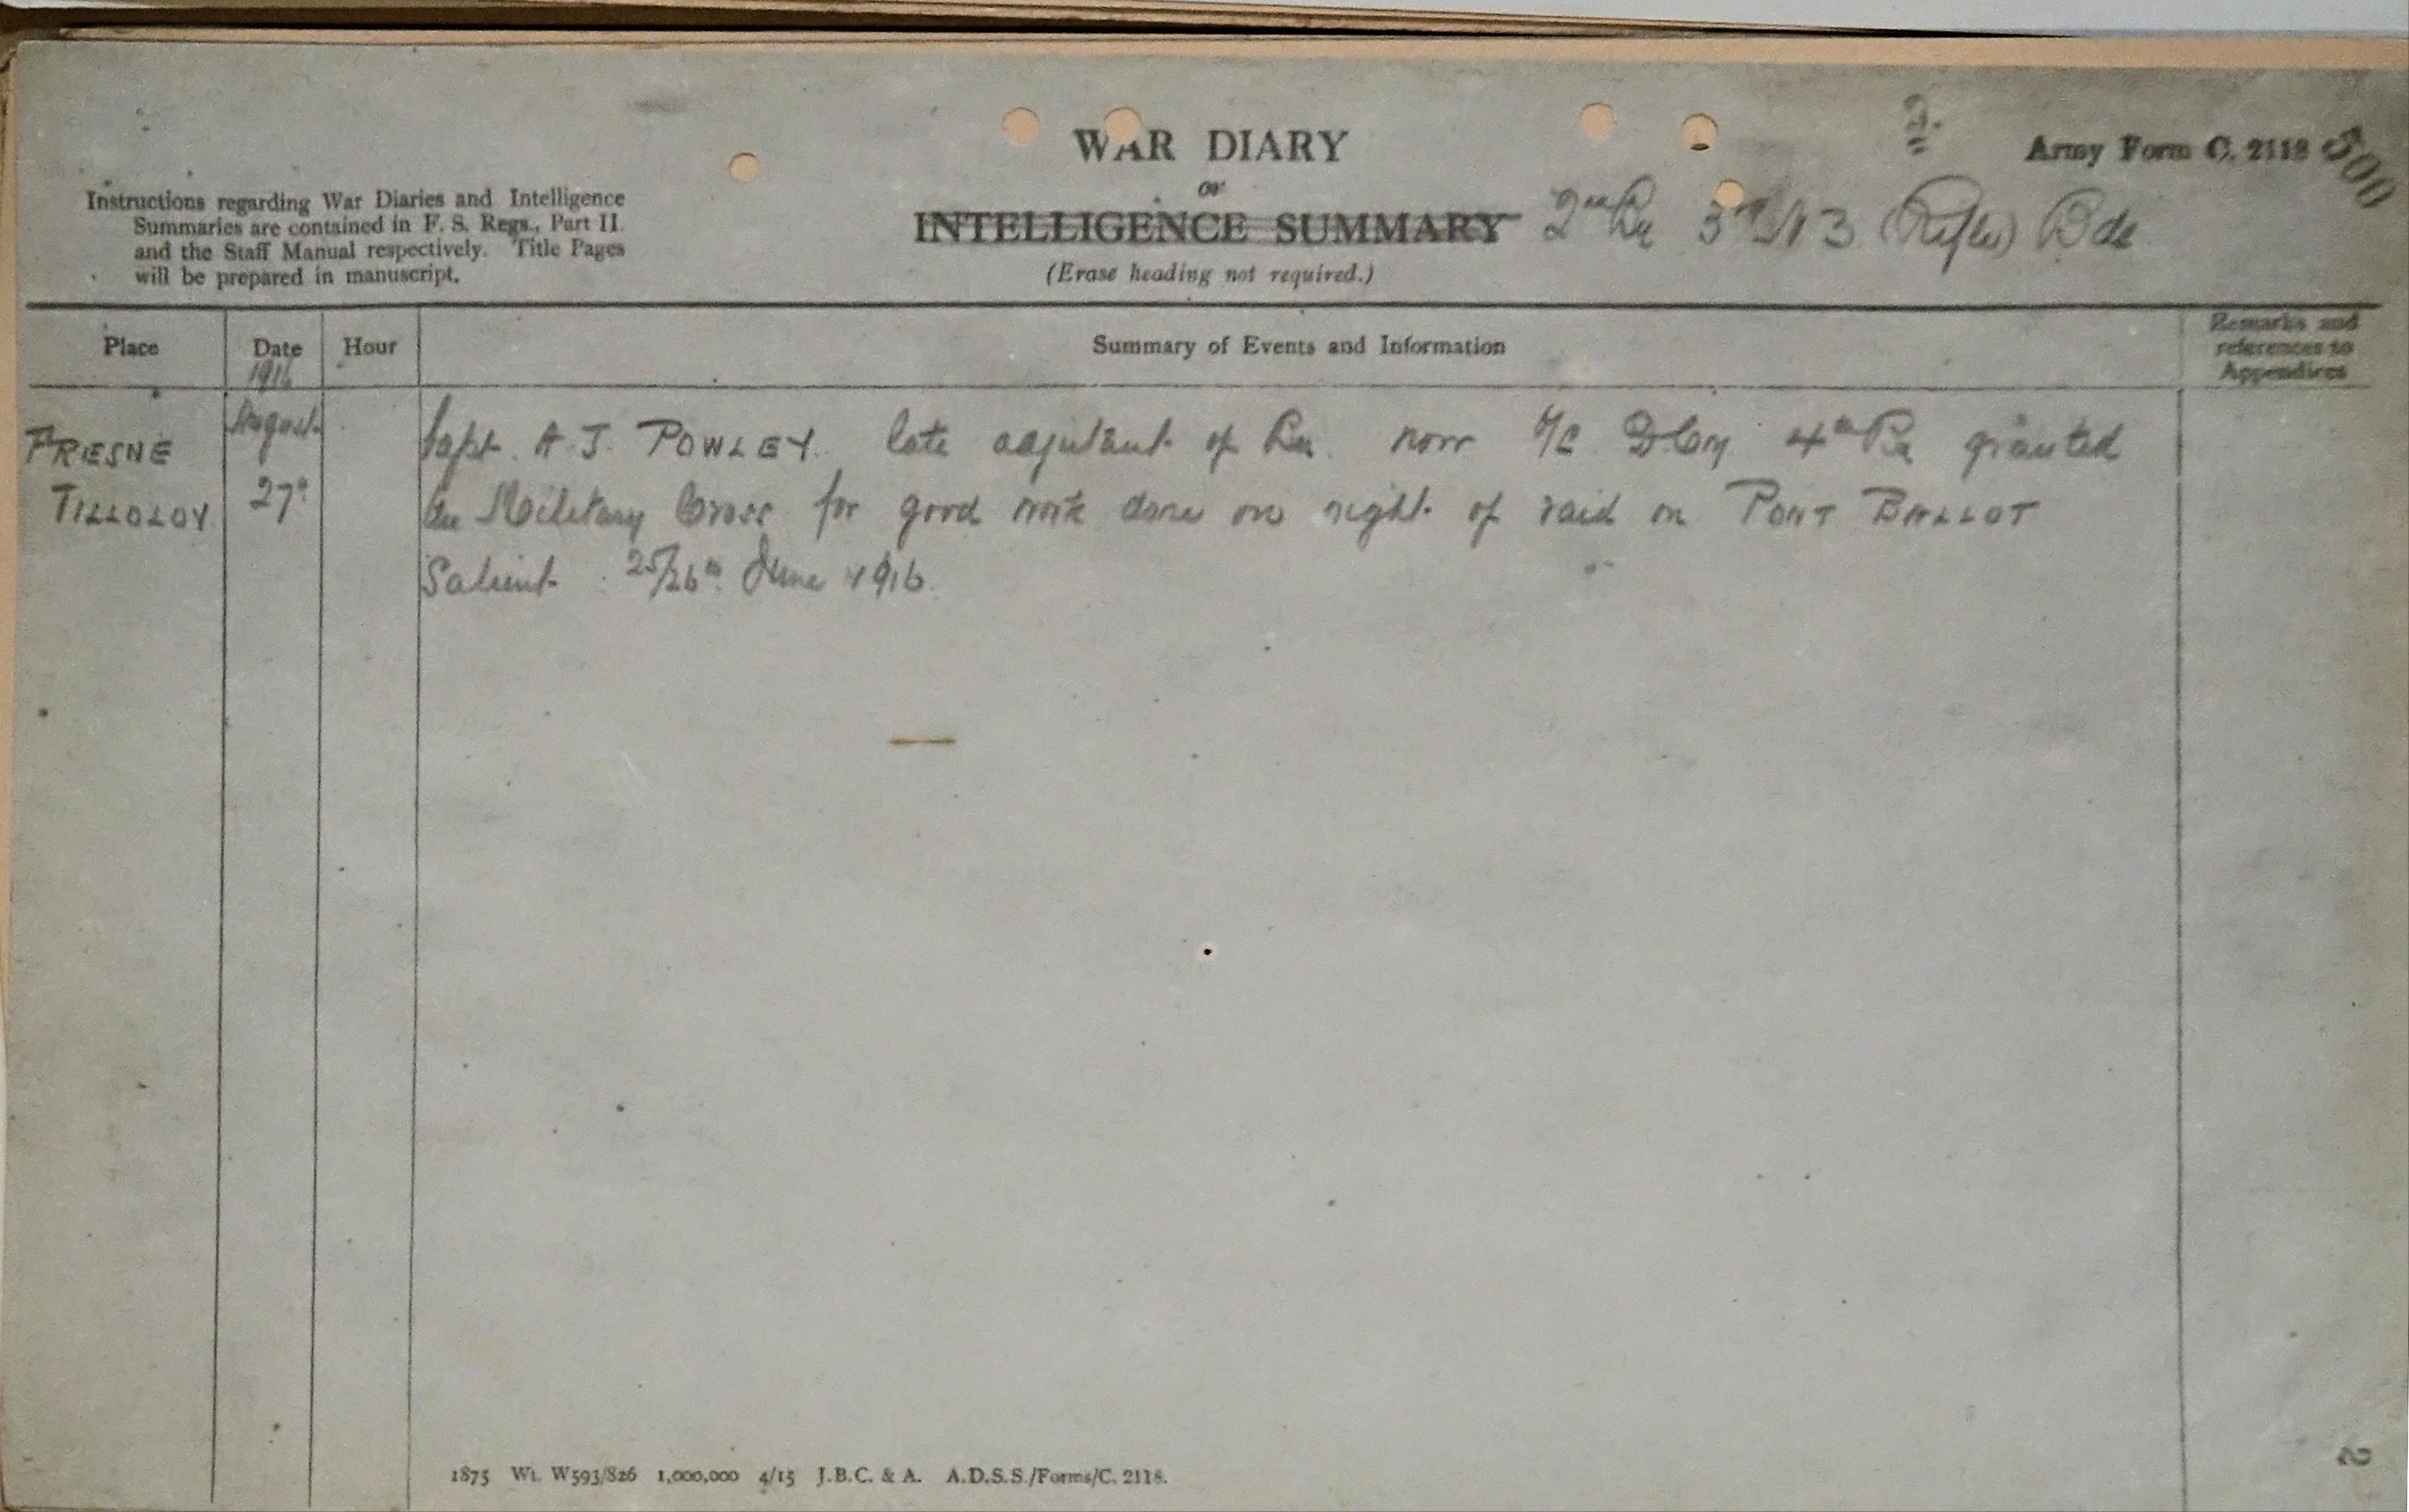 2.
Army Form C. 2118
500
WAR DIARY
or
INTELLIGENCE SUMMARY 2nd Bn 3rd N Z (Rifle) Bde
(Erase heading not required.)
Instructions regarding War Diaries and Intelligence
Summaries are contained in F. S. Regs., Part II.
and the Staff Manual respectively. Title Pages
will be prepared in manuscript.
Place Date Hour Summary of Events and Information Remarks and
references to
Appendices
1916
August
FRESNE Capt. A. J. POWLEY late adjutant of Bn. now O/C D Coy 4th Bn granted
TILLOLOY 27th the Military Cross for good work done on night of raid on PONT BALLOT
Salient : 25/26th June 1916.
1875 Wt. W593/826 1,000,000 4/15 J.B.C. & A. A.D.S.S./Forms/C. 2118.
2